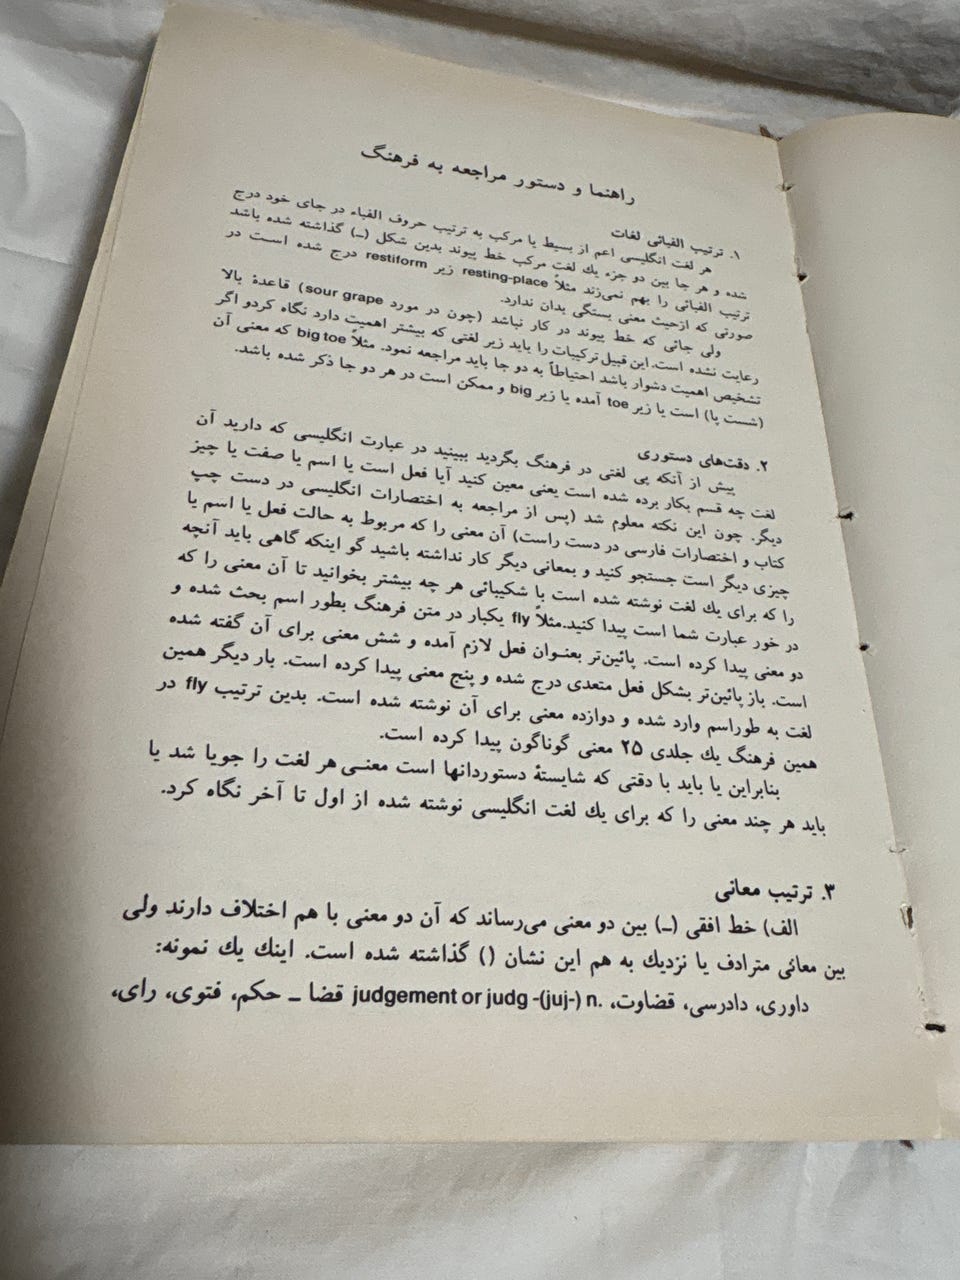 راهنما و دستور مراجعه به فرهنگ
۱. ترتیب الفبائی لغات
هر لغت انگلیسی اعم از بسیط یا مرکب به ترتیب حروف الفباء در جای خود درج
شده و هر جا بین دو جزء یك لغت مرکب خط پیوند بدین شکل (ـ) گذاشته شده باشد
ترتیب الفبائی را بهم نمی‌زند مثلاً resting-place زیر restiform درج شده است در
صورتی که ازحیث معنی بستگی بدان ندارد.
ولی جائی که خط پیوند در کار نباشد (چون در مورد sour grape) قاعدهٔ بالا
رعایت نشده است. این قبیل ترکیبات را باید زیر لغتی که بیشتر اهمیت دارد نگاه کردو اگر
تشخیص اهمیت دشوار باشد احتیاطاً به دو جا باید مراجعه نمود. مثلاً big toe که معنی آن
(شست پا) است یا زیر toe آمده یا زیر big و ممکن است در هر دو جا ذکر شده باشد.
۲. دقت‌های دستوری
پیش از آنکه پی لغتی در فرهنگ بگردید ببینید در عبارت انگلیسی که دارید آن
لغت چه قسم بکار برده شده است یعنی معین کنید آیا فعل است یا اسم یا صفت یا چیز
دیگر. چون این نکته معلوم شد (پس از مراجعه به اختصارات انگلیسی در دست چپ
کتاب و اختصارات فارسی در دست راست) آن معنی را که مربوط به حالت فعل یا اسم یا
چیزی دیگر است جستجو کنید و بمعانی دیگر کار نداشته باشید گو اینکه گاهی باید آنچه
را که برای یك لغت نوشته شده است با شکیبائی هر چه بیشتر بخوانید تا آن معنی را که
در خور عبارت شما است پیدا کنید.مثلاً fly یکبار در متن فرهنگ بطور اسم بحث شده و
دو معنی پیدا کرده است. پائین‌تر بعنـوان فعل لازم آمده و شش معنی برای آن گفته شده
است. باز پائین‌تر بشکل فعل متعدی درج شده و پنج معنی پیدا کرده است. بار دیگر همین
لغت به طوراسم وارد شده و دوازده معنی برای آن نوشته شده است. بدین ترتیب fly در
همین فرهنگ یك جلدی ۲۵ معنی گوناگون پیدا کرده است.
بنابراین یا باید با دقتی که شایستهٔ دستوردانها است معنـی هر لغت را جویا شد یا
باید هر چند معنی را که برای یك لغت انگلیسی نوشته شده از اول تا آخر نگاه کرد.
۳. ترتیب معانی
الف) خط افقی (ـ) بین دو معنی می‌رساند که آن دو معنی با هم اختلاف دارند ولی
بین معانی مترادف یا نزدیك به هم این نشان () گذاشته شده است. اینك یك نمونه:
داوری، دادرسی، قضاوت، .judgement or judg -(juj-) n قضا ـ حکم، فتوی، رای،